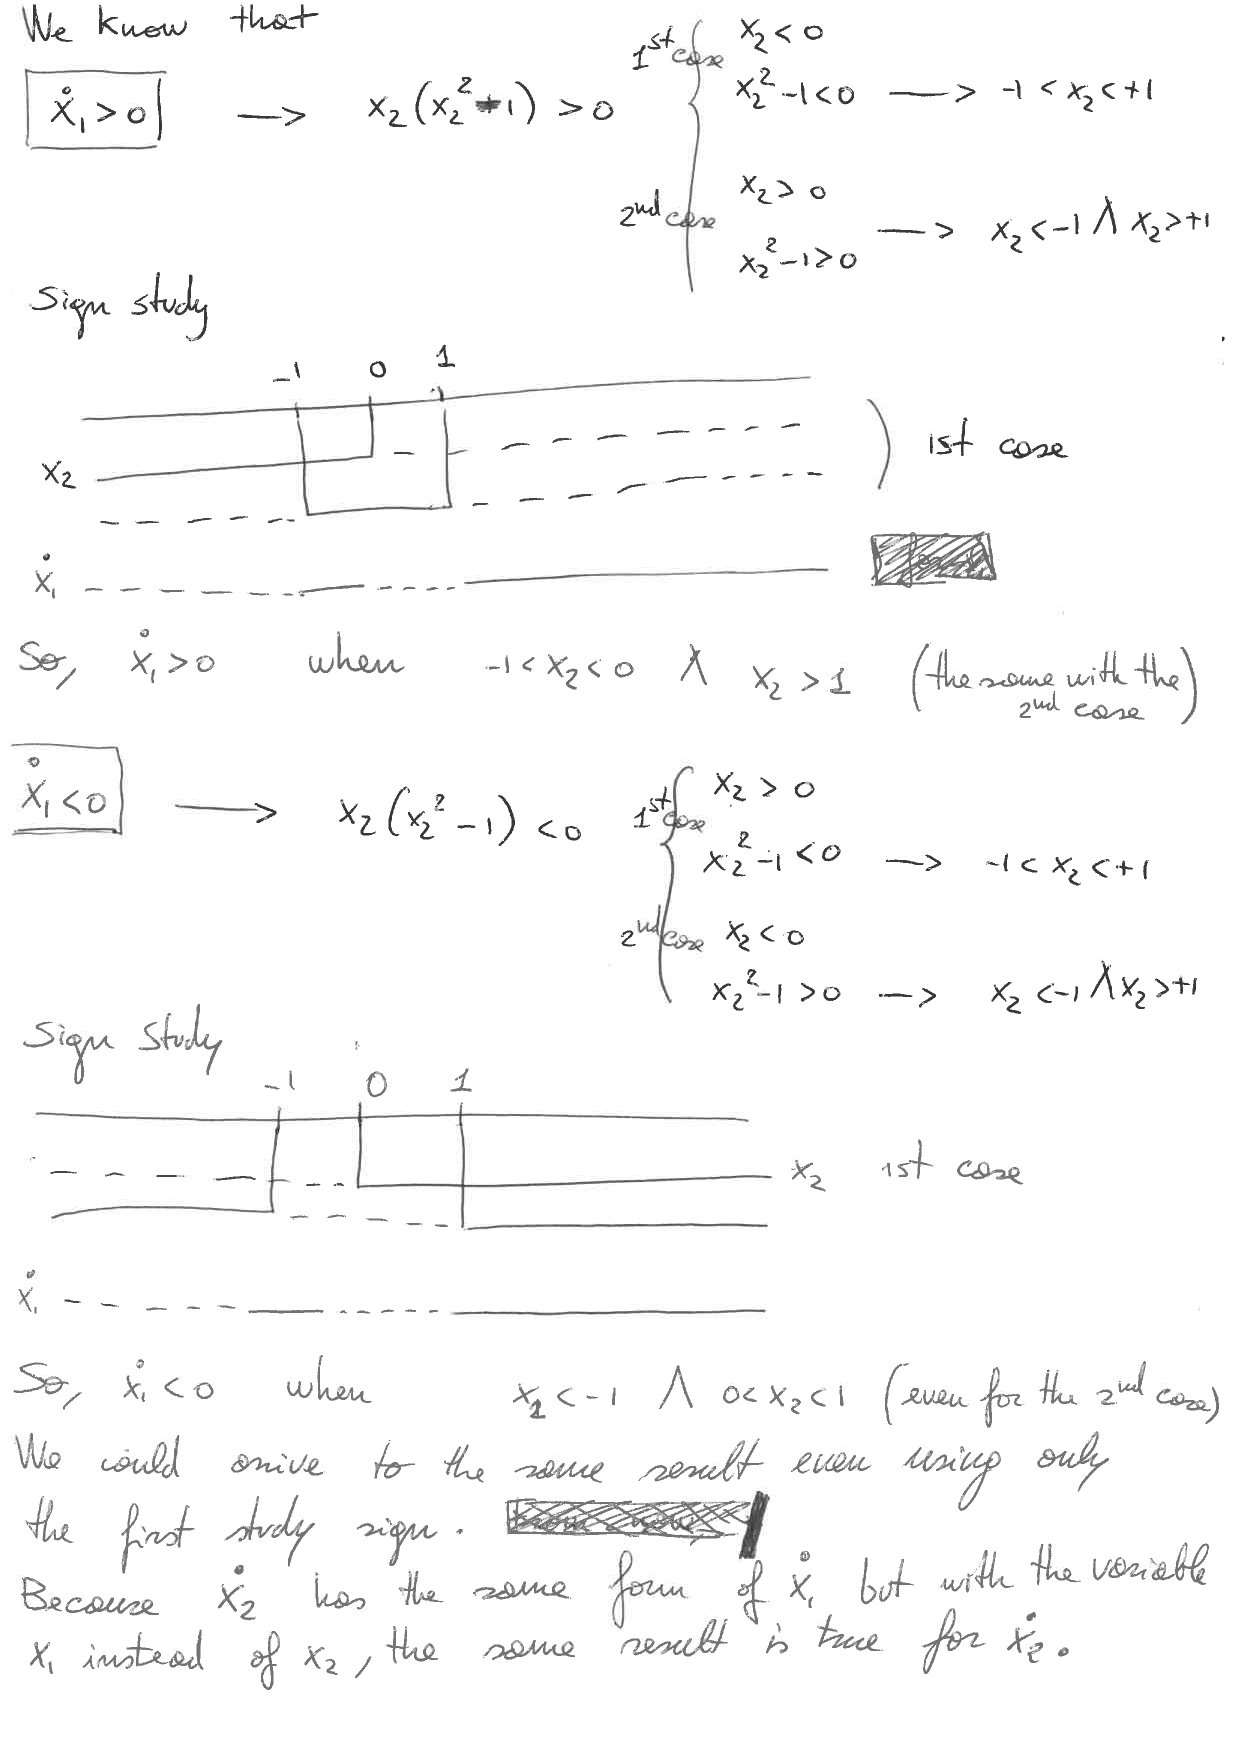 We know that
ẋ₁>0 → x₂(x₂²-1)>0
1st case { x₂<0
x₂²-1<0 → -1<x₂<+1
2nd case x₂>0
x₂²-1>0 → x₂<-1 ∧ x₂>+1
Sign study
-1 0 1
x₂
1st case
ẋ₁
So, ẋ₁>0 when -1<x₂<0 ∧ x₂>1 (the same with the 2nd case)
ẋ₁<0 → x₂(x₂²-1)<0
1st case { x₂>0
x₂²-1<0 → -1<x₂<+1
2nd case x₂<0
x₂²-1>0 → x₂<-1 ∧ x₂>+1
Sign study
-1 0 1
x₂ 1st case
ẋ₁
So, ẋ₁<0 when x₂<-1 ∧ 0<x₂<1 (even for the 2nd case)
We could arrive to the same result even using only
the first study sign.
Because ẋ₂ has the same form of ẋ₁ but with the variable
x₁ instead of x₂, the same result is true for ẋ₂.